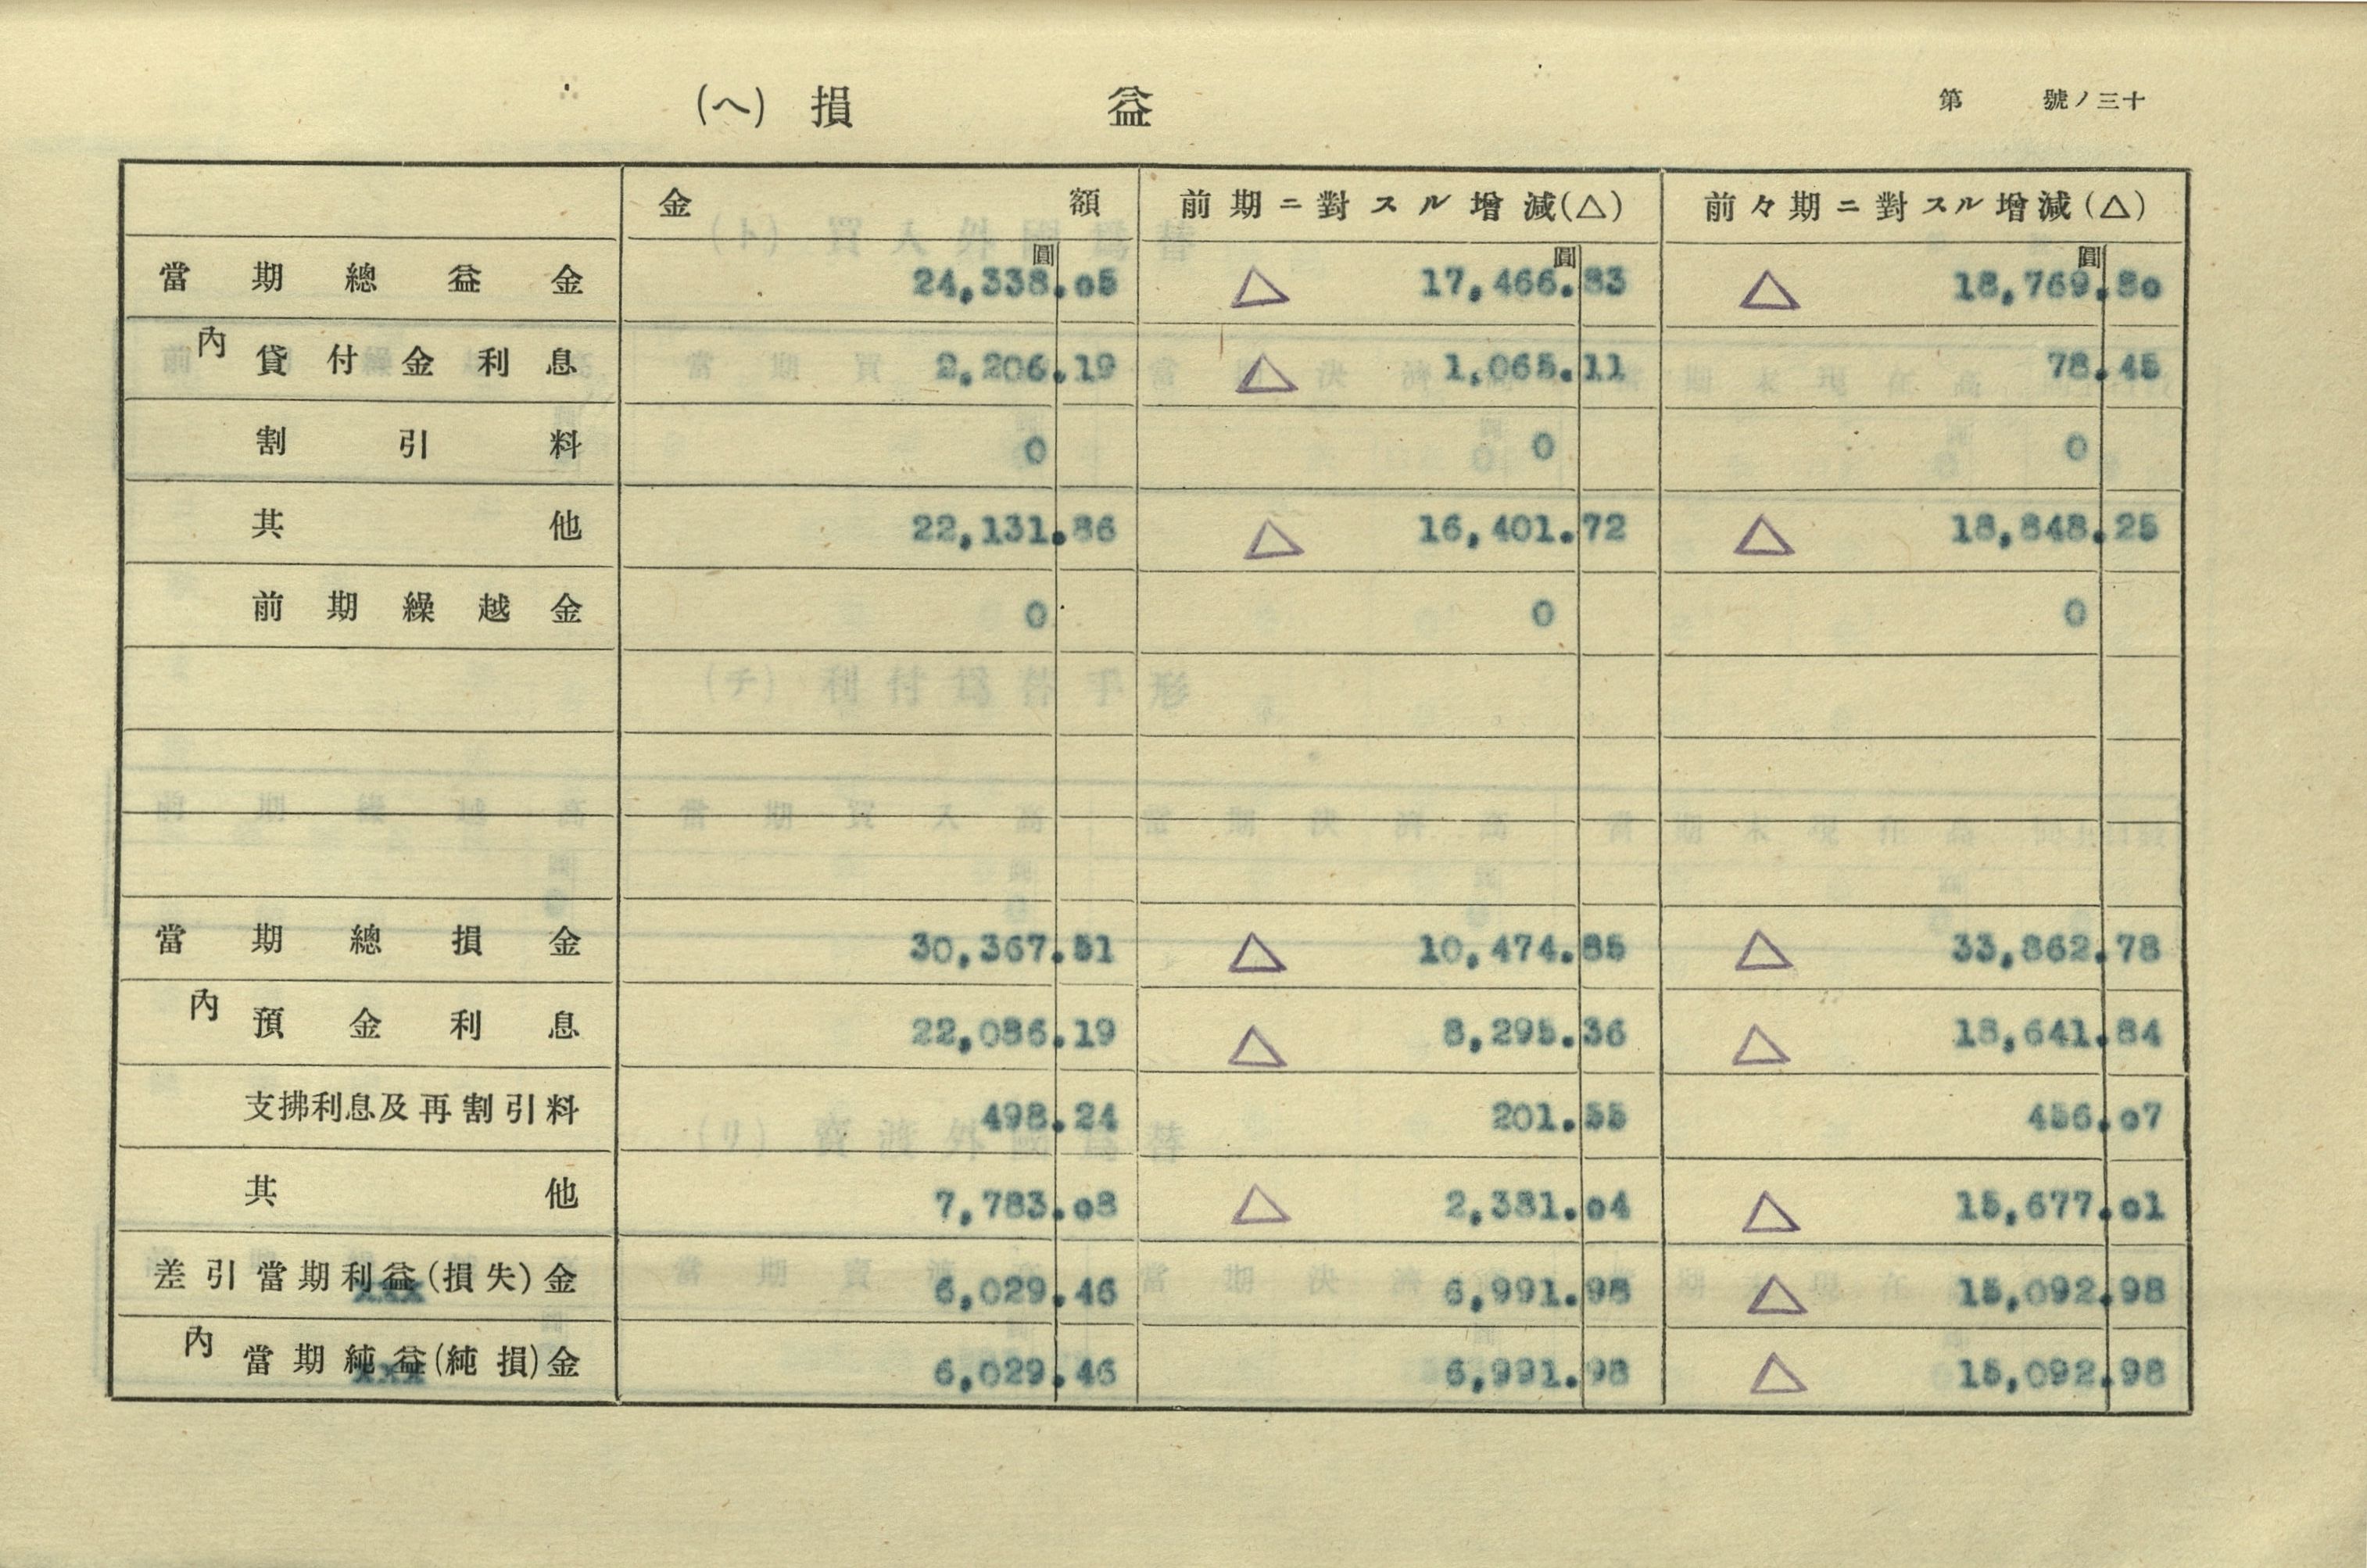 (ヘ) 損益
第 號ノ三十
金額 前期ニ對スル增減(△) 前々期ニ對スル增減(△)
圓 圓 圓
當期總益金 24,338.05 △ 17,466.83 △ 18,769.80
內 貸付金利息 2,206.19 △ 1,065.11 78.45
割引料 0 0 0
其他 22,131.86 △ 16,401.72 △ 18,848.25
前期繰越金 0 0 0
當期總損金 30,367.51 △ 10,474.85 △ 33,862.78
內 預金利息 22,086.19 △ 8,295.36 △ 18,641.84
支拂利息及再割引料 498.24 201.55 456.07
其他 7,783.08 △ 2,381.04 △ 15,677.01
差引當期利益(損失)金 6,029.46 6,991.98 △ 15,092.98
內 當期純益(純損)金 6,029.46 6,991.98 △ 15,092.98